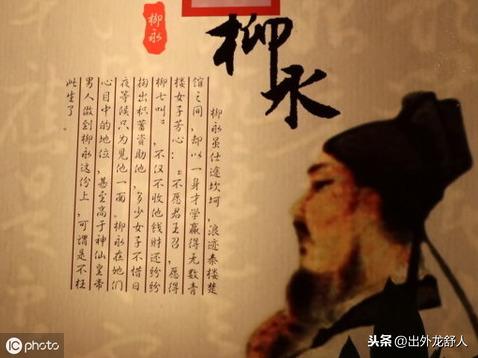 柳永
柳永
柳永虽仕途坎坷，浪迹秦楼楚
馆之间，却以一身才学赢得无数青
楼女子芳心：「不愿君王召，愿得
柳七叫」，不仅不收他钱财还纷纷
掏出积蓄资助他，多少女子不惜日
夜等候只为见他一面。柳永在她们
心目中的地位，甚至高于神仙皇帝
男人做到柳永这份上，可谓是不枉
此生了。
iC photo
头条 @出外龙舒人